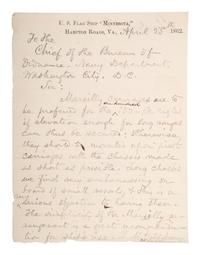 U. S. FLAG SHIP "MINNESOTA,"
HAMPTON ROADS, VA. April 25th 1862.
To the
Chief of the Bureau of
Ordnance. Navy Department.
Washington City. D. C.
Sir:
Marsilly Carriages are to
be preferred for the
if elevation enough for long ranges
can thus be secured; otherwise,
they should be mounted upon pivot
carriages with the chassis made
as short as possible. Long chassis
we find very embarrassing on
board of small vessels, & this is a
serious objection to having them.
The simplicity of the Marsilly ar-
rangement is a great recommenda-
tion for